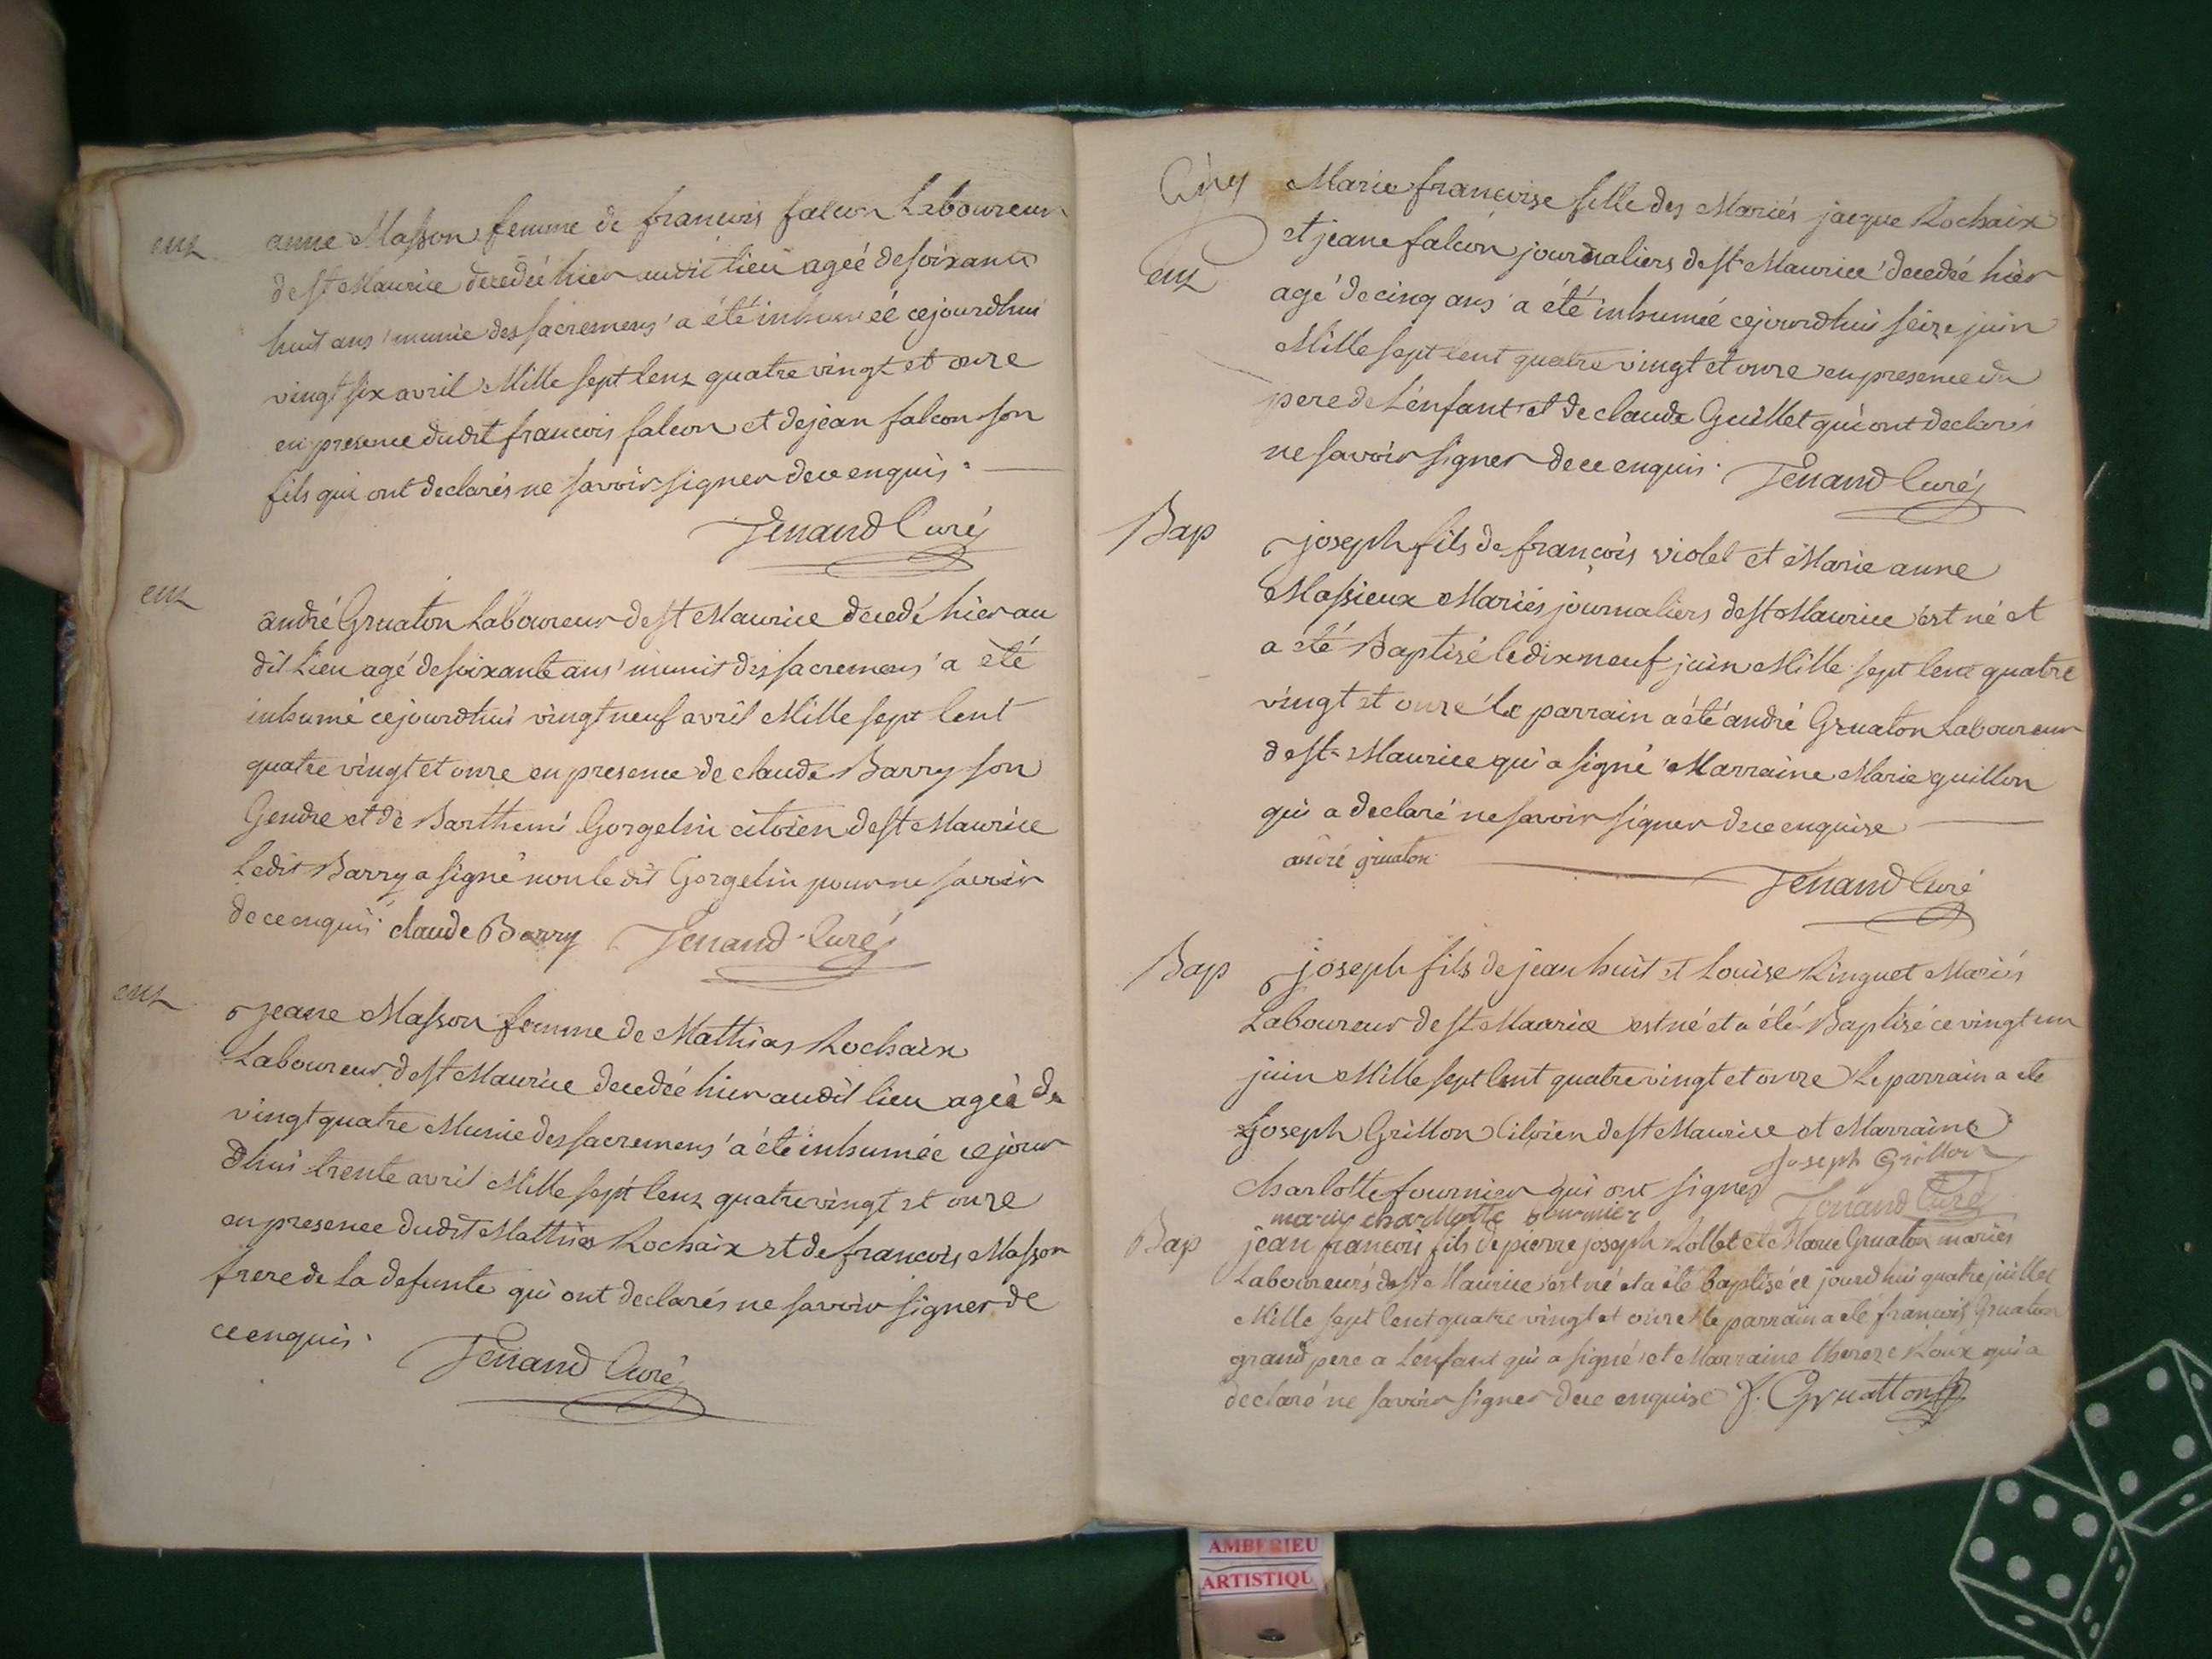 enz
anne Masson femme de francois falcon Laboureur
de st Maurice decedée hier audit lieu ageé de soixante
huit ans munie des sacremens a été inhumeé cejourdhui
vingt six avril Mille sept cenz quatre vingt et onze
en presence dudit francois falcon et de jean falcon son
fils qui ont declarés ne savoir signer de ce enquis.
Tenand Curé
enz
andré Gruaton Laboureur de st Maurice decedé hier au
dit Lieu agé de soixante ans munit des sacremens a été
inhumé cejourdhui vingt neuf avril Mille sept Cent
quatre vingt et onze en presence de claude Barry son
Gendre et de Barthemi Gorgelin citoien de st Maurice
Ledit Barry a signé non le dit Gorgelin pour ne savoir
de ce enquis claude Barry Tenand Curé
enz
Jeane Masson femme de Mathias Rochaix
Laboureur de st Maurice decedeé hier audit lieu ageé de
vingt quatre Munie des sacremens a été inhumée ce jour
dhui trente avril Mille sept cenz quatre vingt et onze
en presence dudit Matthias Rochaix et de francois Masson
frere de La defunte qui ont declarés ne savoir signer de
ce enquis.
Tenand Curé
Marie francoise fille des Mariés jacque Rochaix
et jeane falcon journaliers de st Maurice decedeé hier
enz
agé de cinq ans a été inhumée cejourdhui seize juin
Mille sept Cent quatre vingt et onze en presence du
pere de L'enfant et de claude Guillet qui ont declarés
ne savoir signer de ce enquis. Tenand Curé
Bap
joseph fils de françois violet et Marie anne
Massieux Mariés journaliers de st Maurice est né et
a été Baptisé le dix neuf juin Mille sept Cent quatre
vingt et onze le parrain a été andré Gruaton Laboureur
de st Maurice qui a signé Marraine Marie guillon
qui a declaré ne savoir signer de ce enquise
andré gruaton
Tenand Curé
Bap
joseph fils de jean huit et Louise Ringuet Mariés
Laboureur de st Maurice est né et a été Baptisé ce vingt un
juin Mille sept Cent quatre vingt et onze Le parrain a ete
joseph Grillon Citoien de st Maurice et Marraine
Charlotte fournier qui ont signés Joseph Grillon
marie charllotte fournier Tenand Curé
Bap
jean francois fils de pierre joseph Rollet et Marie Gruaton mariés
Laboureurs de st Maurice est né et a été baptisé ce jourdhui quatre juillet
Mille sept Cent quatre vingt et onze le parrain a été francois Gruaton
grand pere a Lenfant qui a signé et Marraine thereze Roux qui a
declaré ne savoir signer de ce enquise f. Gruatton
AMBERIEU
ARTISTIQU